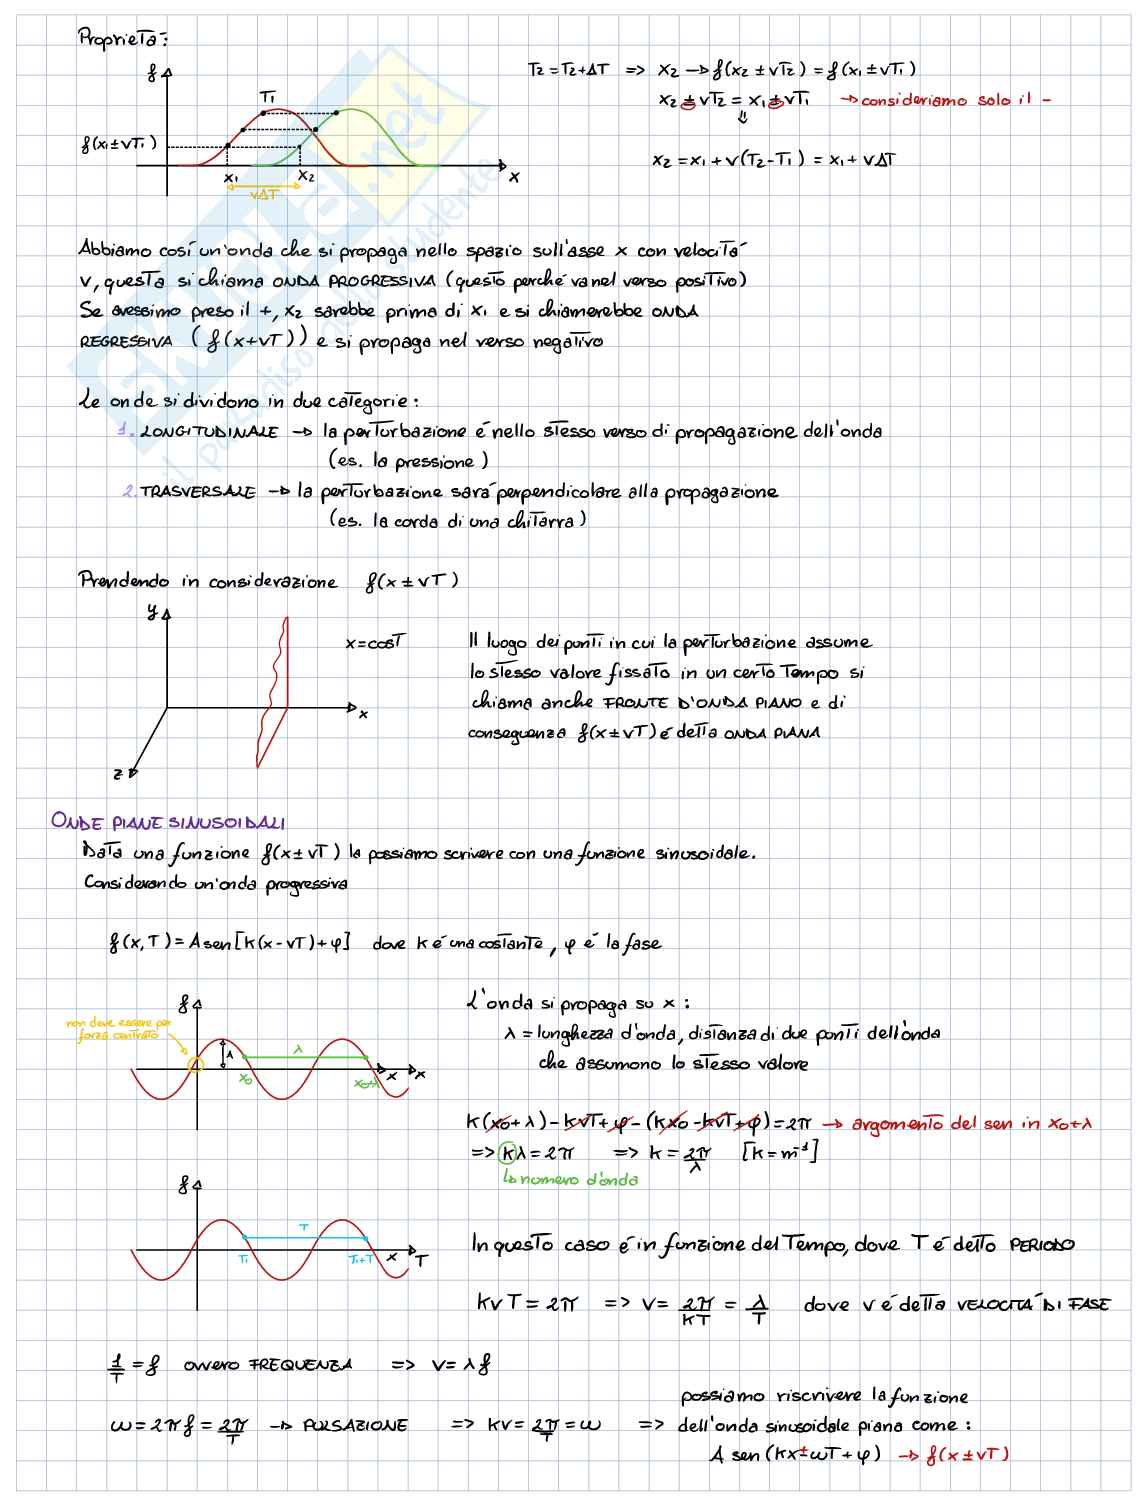 Proprietà:
f
T₁
f(x₁±vT₁)
x₁
x₂
x
vΔT
T₂=T₂+ΔT => x₂ → f(x₂ ± vT₂) = f(x₁ ± vT₁)
x₂ ± vT₂ = x₁ ± vT₁ → consideriamo solo il -
⇓
x₂ = x₁ + v(T₂-T₁) = x₁ + vΔT
Abbiamo così un'onda che si propaga nello spazio sull'asse x con velocità
v, questa si chiama ONDA PROGRESSIVA (questo perché va nel verso positivo)
Se avessimo preso il +, x₂ sarebbe prima di x₁ e si chiamerebbe ONDA
REGRESSIVA (f(x+vT)) e si propaga nel verso negativo
Le onde si dividono in due categorie:
1. LONGITUDINALE → la perturbazione é nello stesso verso di propagazione dell'onda
(es. la pressione)
2. TRASVERSALE → la perturbazione sará perpendicolare alla propagazione
(es. la corda di una chitarra)
Prendendo in considerazione f(x ± vT)
y
x
z
x=cost
Il luogo dei punti in cui la perturbazione assume
lo stesso valore fissato in un certo tempo si
chiama anche FRONTE D'ONDA PIANO e di
conseguenza f(x±vT) é detta ONDA PIANA
ONDE PIANE SINUSOIDALI
Data una funzione f(x±vT) la possiamo scrivere con una funzione sinusoidale.
Considerando un'onda progressiva
f(x,T) = A sen[k(x-vT)+φ] dove k é una costante, φ é la fase
f
non deve essere per
forza centrato
A
λ
x₀
x₀+λ
x
x
L'onda si propaga su x:
λ = lunghezza d'onda, distanza di due punti dell'onda
che assumono lo stesso valore
k(x₀+λ) - kvT + φ - (kx₀ - kvT + φ) = 2π → argomento del sen in x₀+λ
=> kλ = 2π => k = 2π/λ [k = m⁻¹]
↳ numero d'onda
f
T
T₁
T₁+T
x
T
In questo caso é in funzione del tempo, dove T é detto PERIODO
kvT = 2π => v = 2π/kT = λ/T dove v é detta VELOCITÁ DI FASE
1/T = f ovvero FREQUENZA => v = λf
ω = 2πf = 2π/T → PULSAZIONE => kv = 2π/T = ω =>
possiamo riscrivere la funzione
dell'onda sinusoidale piana come:
A sen(kx ± ωT + φ) → f(x ± vT)
SKUOLA.net